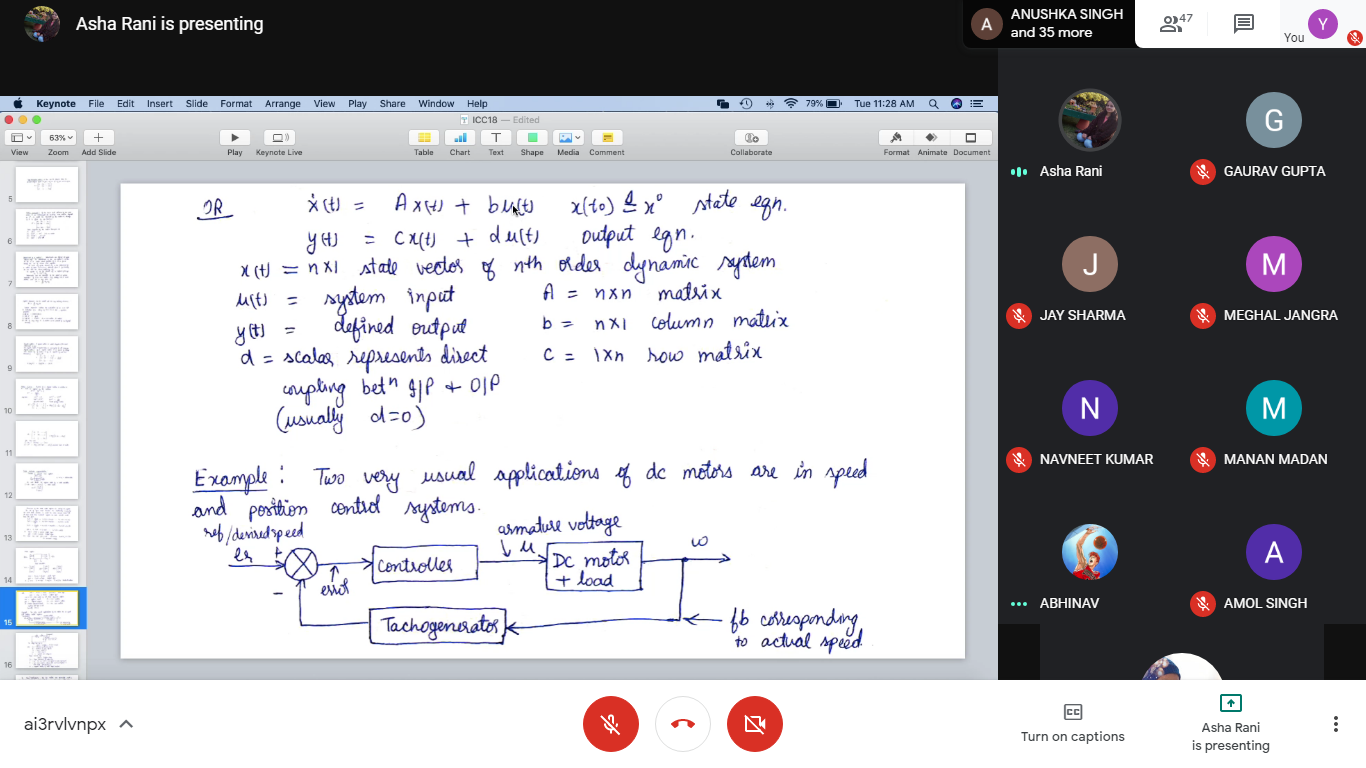 Asha Rani is presenting
ANUSHKA SINGH
and 35 more
47
You
Keynote File Edit Insert Slide Format Arrange View Play Share Window Help
79% Tue 11:28 AM
ICC18 — Edited
63%
View Zoom Add Slide Play Keynote Live Table Chart Text Shape Media Comment Collaborate Format Animate Document
5
6
7
8
9
10
11
12
13
14
15
16
OR ẋ(t) = A x(t) + b u(t) x(t₀) ≜ x⁰ state eqn.
y(t) = c x(t) + d u(t) output eqn.
x(t) = n×1 state vector of nth order dynamic system
u(t) = system input A = n×n matrix
y(t) = defined output b = n×1 column matrix
d = scalar represents direct c = 1×n row matrix
coupling betⁿ I/P & O/P
(usually d=0)
Example : Two very usual applications of dc motors are in speed
and position control systems.
ref/desired speed
armature voltage
er + − error Controller u DC motor + load ω
Tachogenerator
fb corresponding
to actual speed
Asha Rani
G
GAURAV GUPTA
J
JAY SHARMA
M
MEGHAL JANGRA
N
NAVNEET KUMAR
M
MANAN MADAN
ABHINAV
A
AMOL SINGH
A
Y
ai3rvlvnpx
CC
Turn on captions
Asha Rani
is presenting